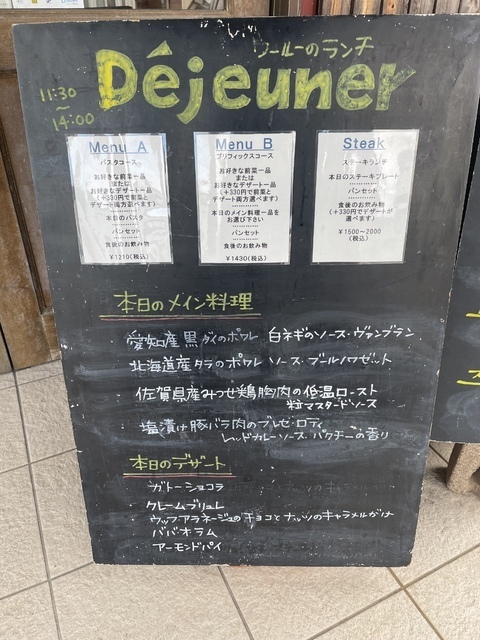 ソールーのランチ
Déjeuner
11:30
~
14:00
Menu A
パスタコース
お好きな前菜一品
または
お好きなデザート一品
(+330円で前菜と
デザート両方選べます)
本日のパスタ
パンセット
食後のお飲み物
¥1210(税込)
Menu B
プリフィックスコース
お好きな前菜一品
または
お好きなデザート一品
(+330円で前菜と
デザート両方選べます)
本日のメイン料理一品を
お選び下さい
パンセット
食後のお飲み物
¥1430(税込)
Steak
ステーキランチ
本日のステーキプレート
パンセット
食後のお飲み物
(+330円でデザートが
選べます)
¥1500~2000
(税込)
本日のメイン料理
愛知産黒ダイのポワレ 白ネギのソース・ヴァンブラン
北海道産タラのポワレ ソース・ブールノワゼット
佐賀県産みつせ鶏胸肉の低温ロースト
粒マスタードソース
塩漬け豚バラ肉のブレゼ・ロティ
レッドカレーソース パクチーの香り
本日のデザート
ガトーショコラ
クレームブリュレ
ウッフ・アラネージュのチョコとナッツのキャラメルがけ
ババ・オ・ラム
アーモンドパイ